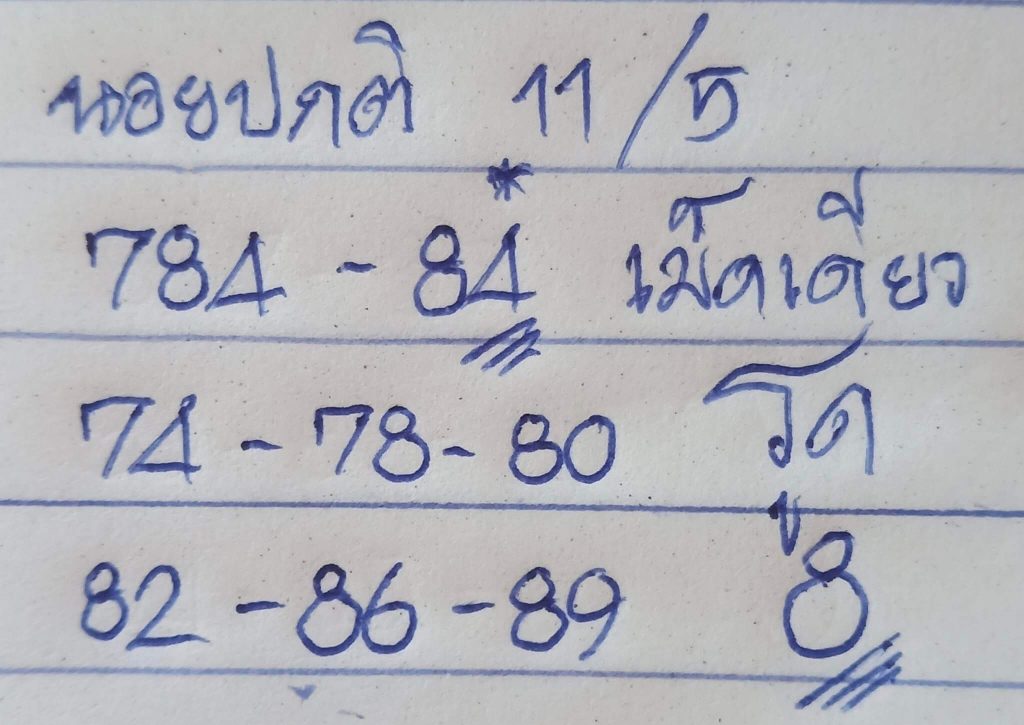 นอยปกติ 11/5
784 - 84 * เม็ดเดียว
74 - 78 - 80 รูด
82 - 86 - 89 8